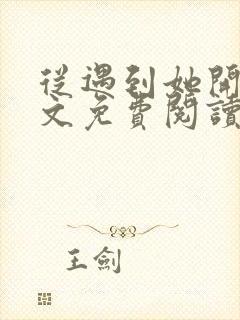 從遇到她開
文免費閱讀
王劍